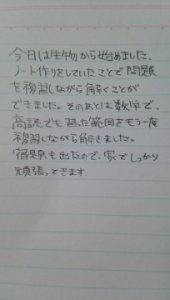 今日は生物から始めました。
ノート作りをしていたことで問題
を復習しながら解くことが
できました。そのあとは数学で、
高読でも習った範囲をもう一度
復習しながら解きました。
宿題も出たので、家でしっかり
頑張ってきます